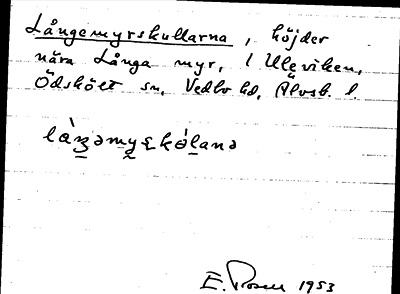 Långemyrskullarna, höjder
nära Långa myr, i Uleviken,
Ödskölt sn, Vedbo hd, Älvsb. l.
E. Rosell 1953